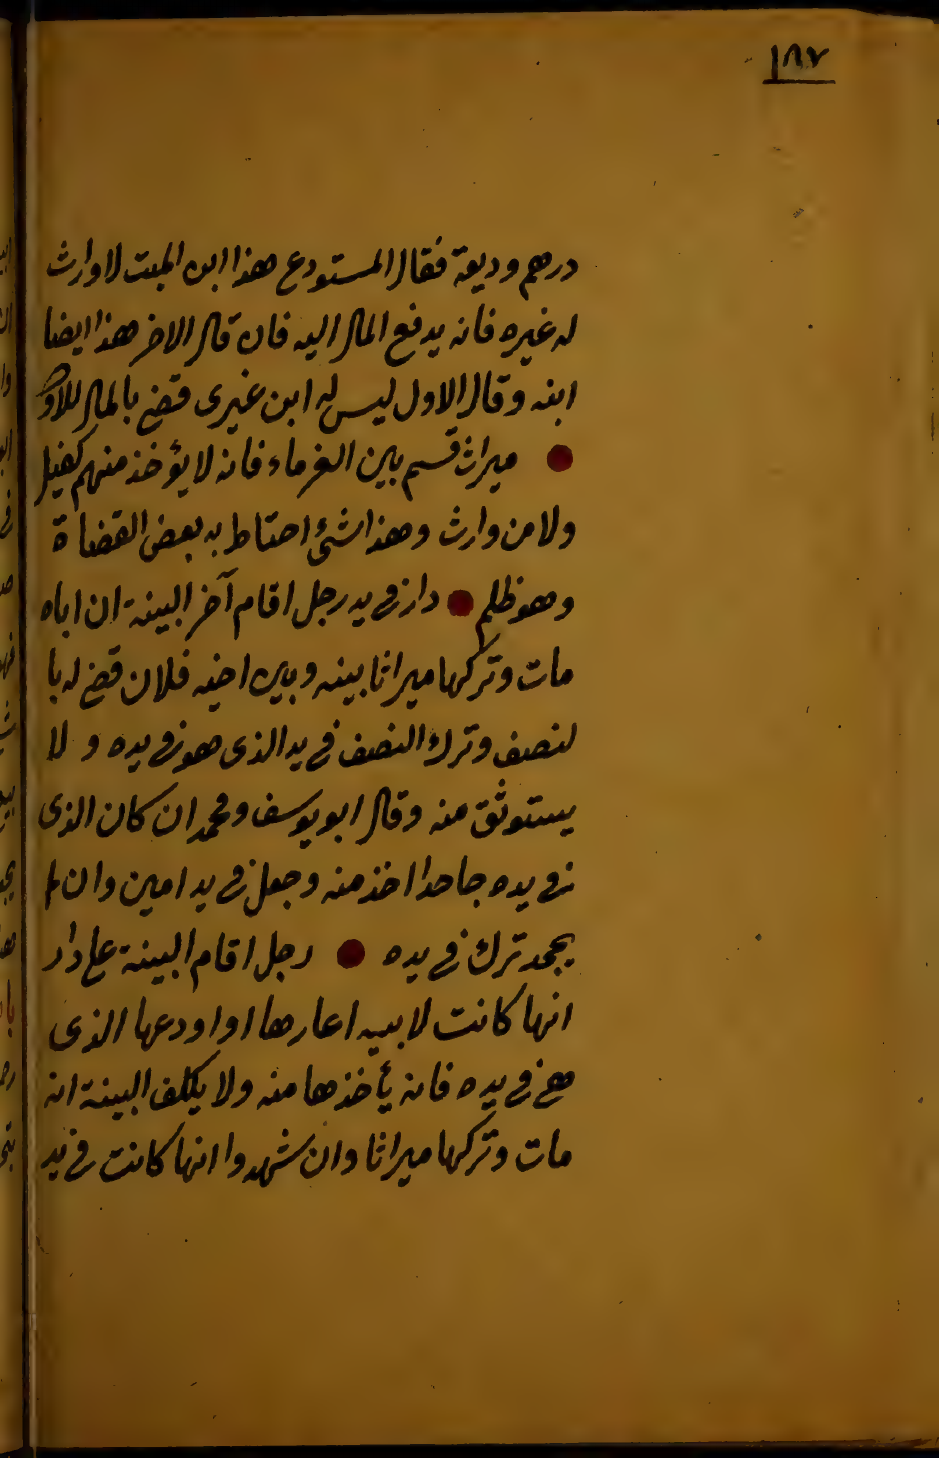 ١٨٧
درهم وديعة فقال المستودع هذا ابن الميت لا وارث
له غيره فانه يدفع المال اليه فان قال الاخر هذا ايضا
ابنه وقال الاول ليس له ابن غيرى قضى بالمال للاول
ميراث قسم بين الغرماء فانه لا يؤخذ منهم كفيل
ولا من وارث وهذا شئ احتاط به بعض القضاة
وهو ظلم دار فى يد رجل اقام آخر البينة ان اباه
مات وتركها ميراثا بينه وبين اخيه فلان قضى له با
لنصف وترك النصف فى يد الذى هو فى يده و لا
يستوثق منه وقال ابو يوسف ومحمد ان كان الذى
فى يده جاحدا اخذ منه وجعل فى يد امين وان لم
يجحد ترك فى يده رجل اقام البينة على دار
انها كانت لابيه اعارها او اودعها الذى
هى فى يده فانه يأخذها منه ولا يكلف البينة انه
مات وتركها ميراثا وان شهدوا انها كانت فى يد